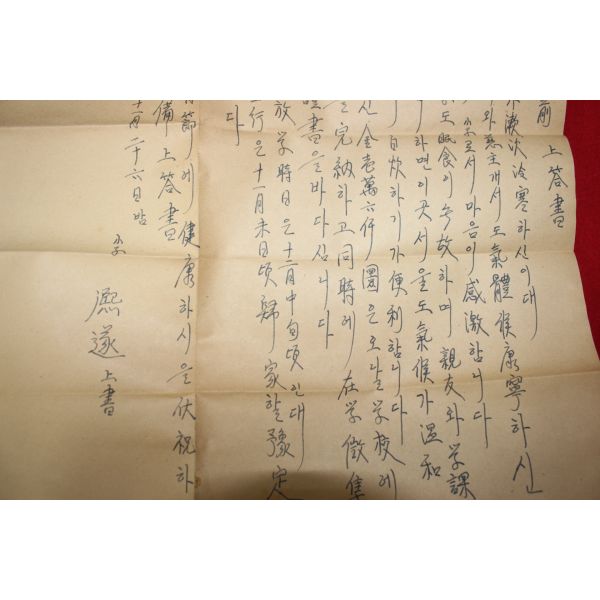 前 上答書
漸次冷寒하신이대
와慈主개서도氣體候康寧하신
子로서마음이感激합니다
도眠食이無故하며 親友와学課
하면이곳서울도氣候가溫和
自炊하기가便利합니다
金壱萬六仟圜은오날学校에
을完納하고同時에 在学徵集
書을바다심니다
放学時日은十二月中旬頃인대
行은十二月末日頃歸家할豫定
다
節에 健康하시을伏祝하
備上答書
十一月二十六日밤
子 熙遂 上書